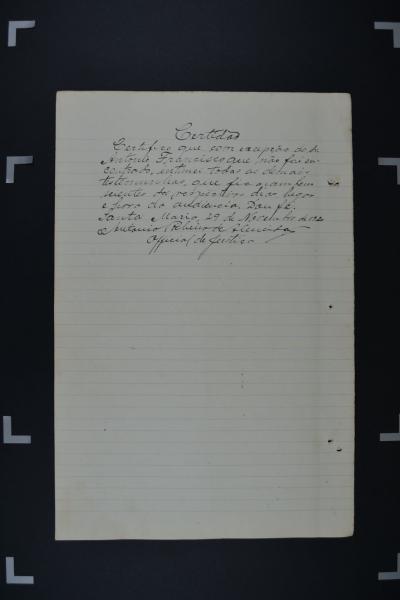 Certidão
Certifico que, com excepção do Sr.
Antonio Francisco que não foi en-
contrado, intimei todas as demais
testemunhas, que ficaram scien-
tes do respectivo dia, lugar
e hora da audiencia. Dou fé.
Santa Maria, 29 de Novembro de
Antonio Ribeiro de
Official de Justiça